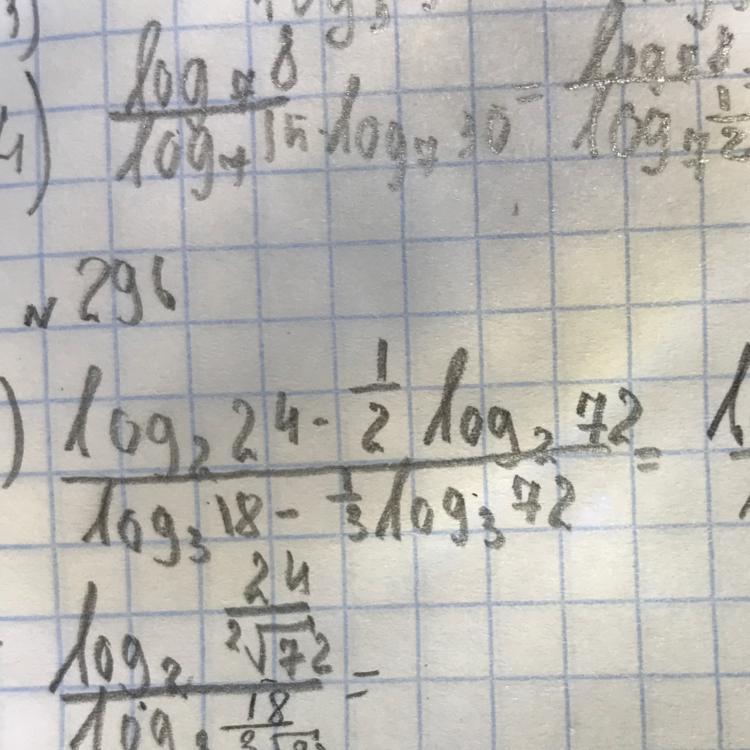 3)
4) log₇ 8 / log₇ 15 - log₇ 30 = log₇ 8 / log₇ 1/2
N 296
) log₂ 24 - 1/2 log₂ 72 / log₃ 18 - 1/3 log₃ 72 =
log₂ 24/²√72 / log₃ 18/³√ =